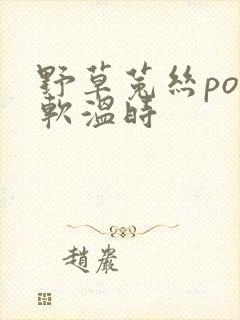 野草菟絲po
軟溫時
趙嚴